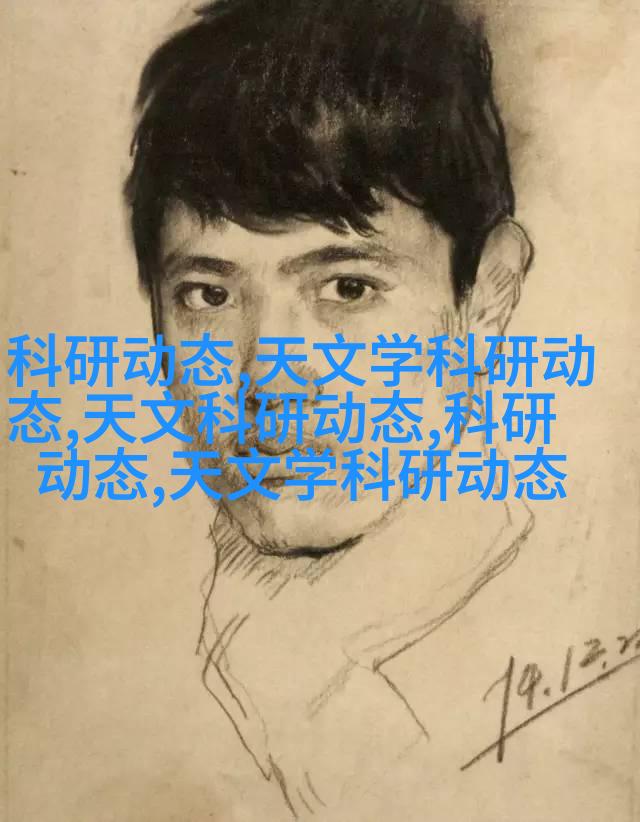 科研动态,天文学科研动
态,天文科研动态,科研
动态,天文学科研动态
74.12.22